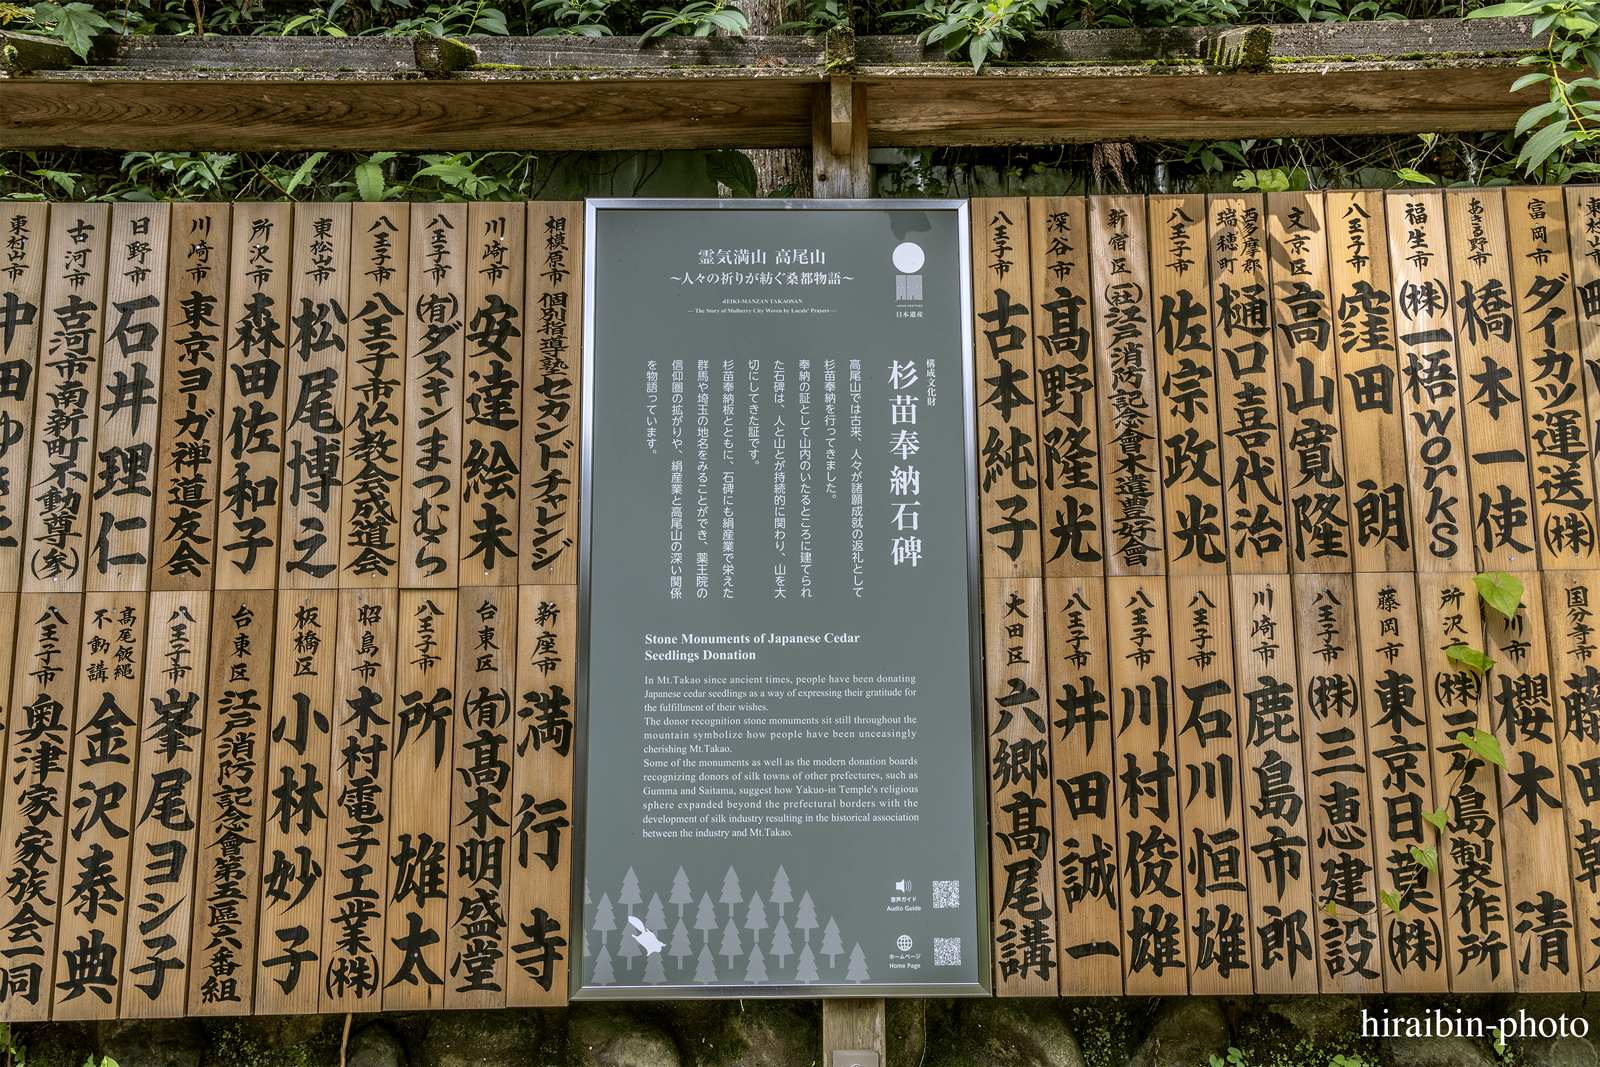 霊気満山 高尾山
～人々の祈りが紡ぐ桑都物語～
REIKI-MANZAN TAKAOSAN
— The Story of Mulberry City Woven by Locals' Prayers —
JAPAN HERITAGE
日本遺産
構成文化財
杉苗奉納石碑
高尾山では古来、人々が諸願成就の返礼として
杉苗奉納を行ってきました。
奉納の証として山内のいたるところに建てられ
た石碑は、人と山とが持続的に関わり、山を大
切にしてきた証です。
杉苗奉納板とともに、石碑にも絹産業で栄えた
群馬や埼玉の地名をみることができ、薬王院の
信仰圏の拡がりや、絹産業と高尾山の深い関係
を物語っています。
Stone Monuments of Japanese Cedar
Seedlings Donation
In Mt.Takao since ancient times, people have been donating
Japanese cedar seedlings as a way of expressing their gratitude for
the fulfillment of their wishes.
The donor recognition stone monuments sit still throughout the
mountain symbolize how people have been unceasingly
cherishing Mt.Takao.
Some of the monuments as well as the modern donation boards
recognizing donors of silk towns of other prefectures, such as
Gumma and Saitama, suggest how Yakuo-in Temple's religious
sphere expanded beyond the prefectural borders with the
development of silk industry resulting in the historical association
between the industry and Mt.Takao.
音声ガイド
Audio Guide
ホームページ
Home Page
富岡市 ダイカツ運送(株)
あきる野市 橋本一使
福生市 (株)一悟works
八王子市 窪田 朗
文京区 高山寛隆
西多摩郡瑞穂町 樋口喜代治
八王子市 佐宗政光
新宿区 (社)江戸消防記念會木遣豊好會
深谷市 髙野隆光
八王子市 古本純子
相模原市 個別指導塾セカンドチャレンジ
川崎市 安達絵未
八王子市 (有)ダスキンまつむら
八王子市 八王子市仏教会成道会
東松山市 松尾博之
所沢市 森田佐和子
川崎市 東京ヨーガ禅道友会
日野市 石井理仁
古河市 古河市南新町不動尊(参)
東村山市 中田ゆ
国分寺市 藤田
川市 櫻木 清
所沢市 (株)三ヶ島製作所
藤岡市 東京日莫(株)
八王子市 (株)三恵建設
川崎市 鹿島市郎
八王子市 石川恒雄
八王子市 川村俊雄
八王子市 井田誠一
大田区 六郷髙尾講
新座市 満行寺
台東区 (有)髙木明盛堂
八王子市 所 雄太
昭島市 木村電子工業(株)
板橋区 小林妙子
台東区 江戸消防記念會第五區六番組
八王子市 峯尾ヨシ子
髙尾飯縄不動講 金沢泰典
八王子市 奥津家家族会一同
hiraibin-photo